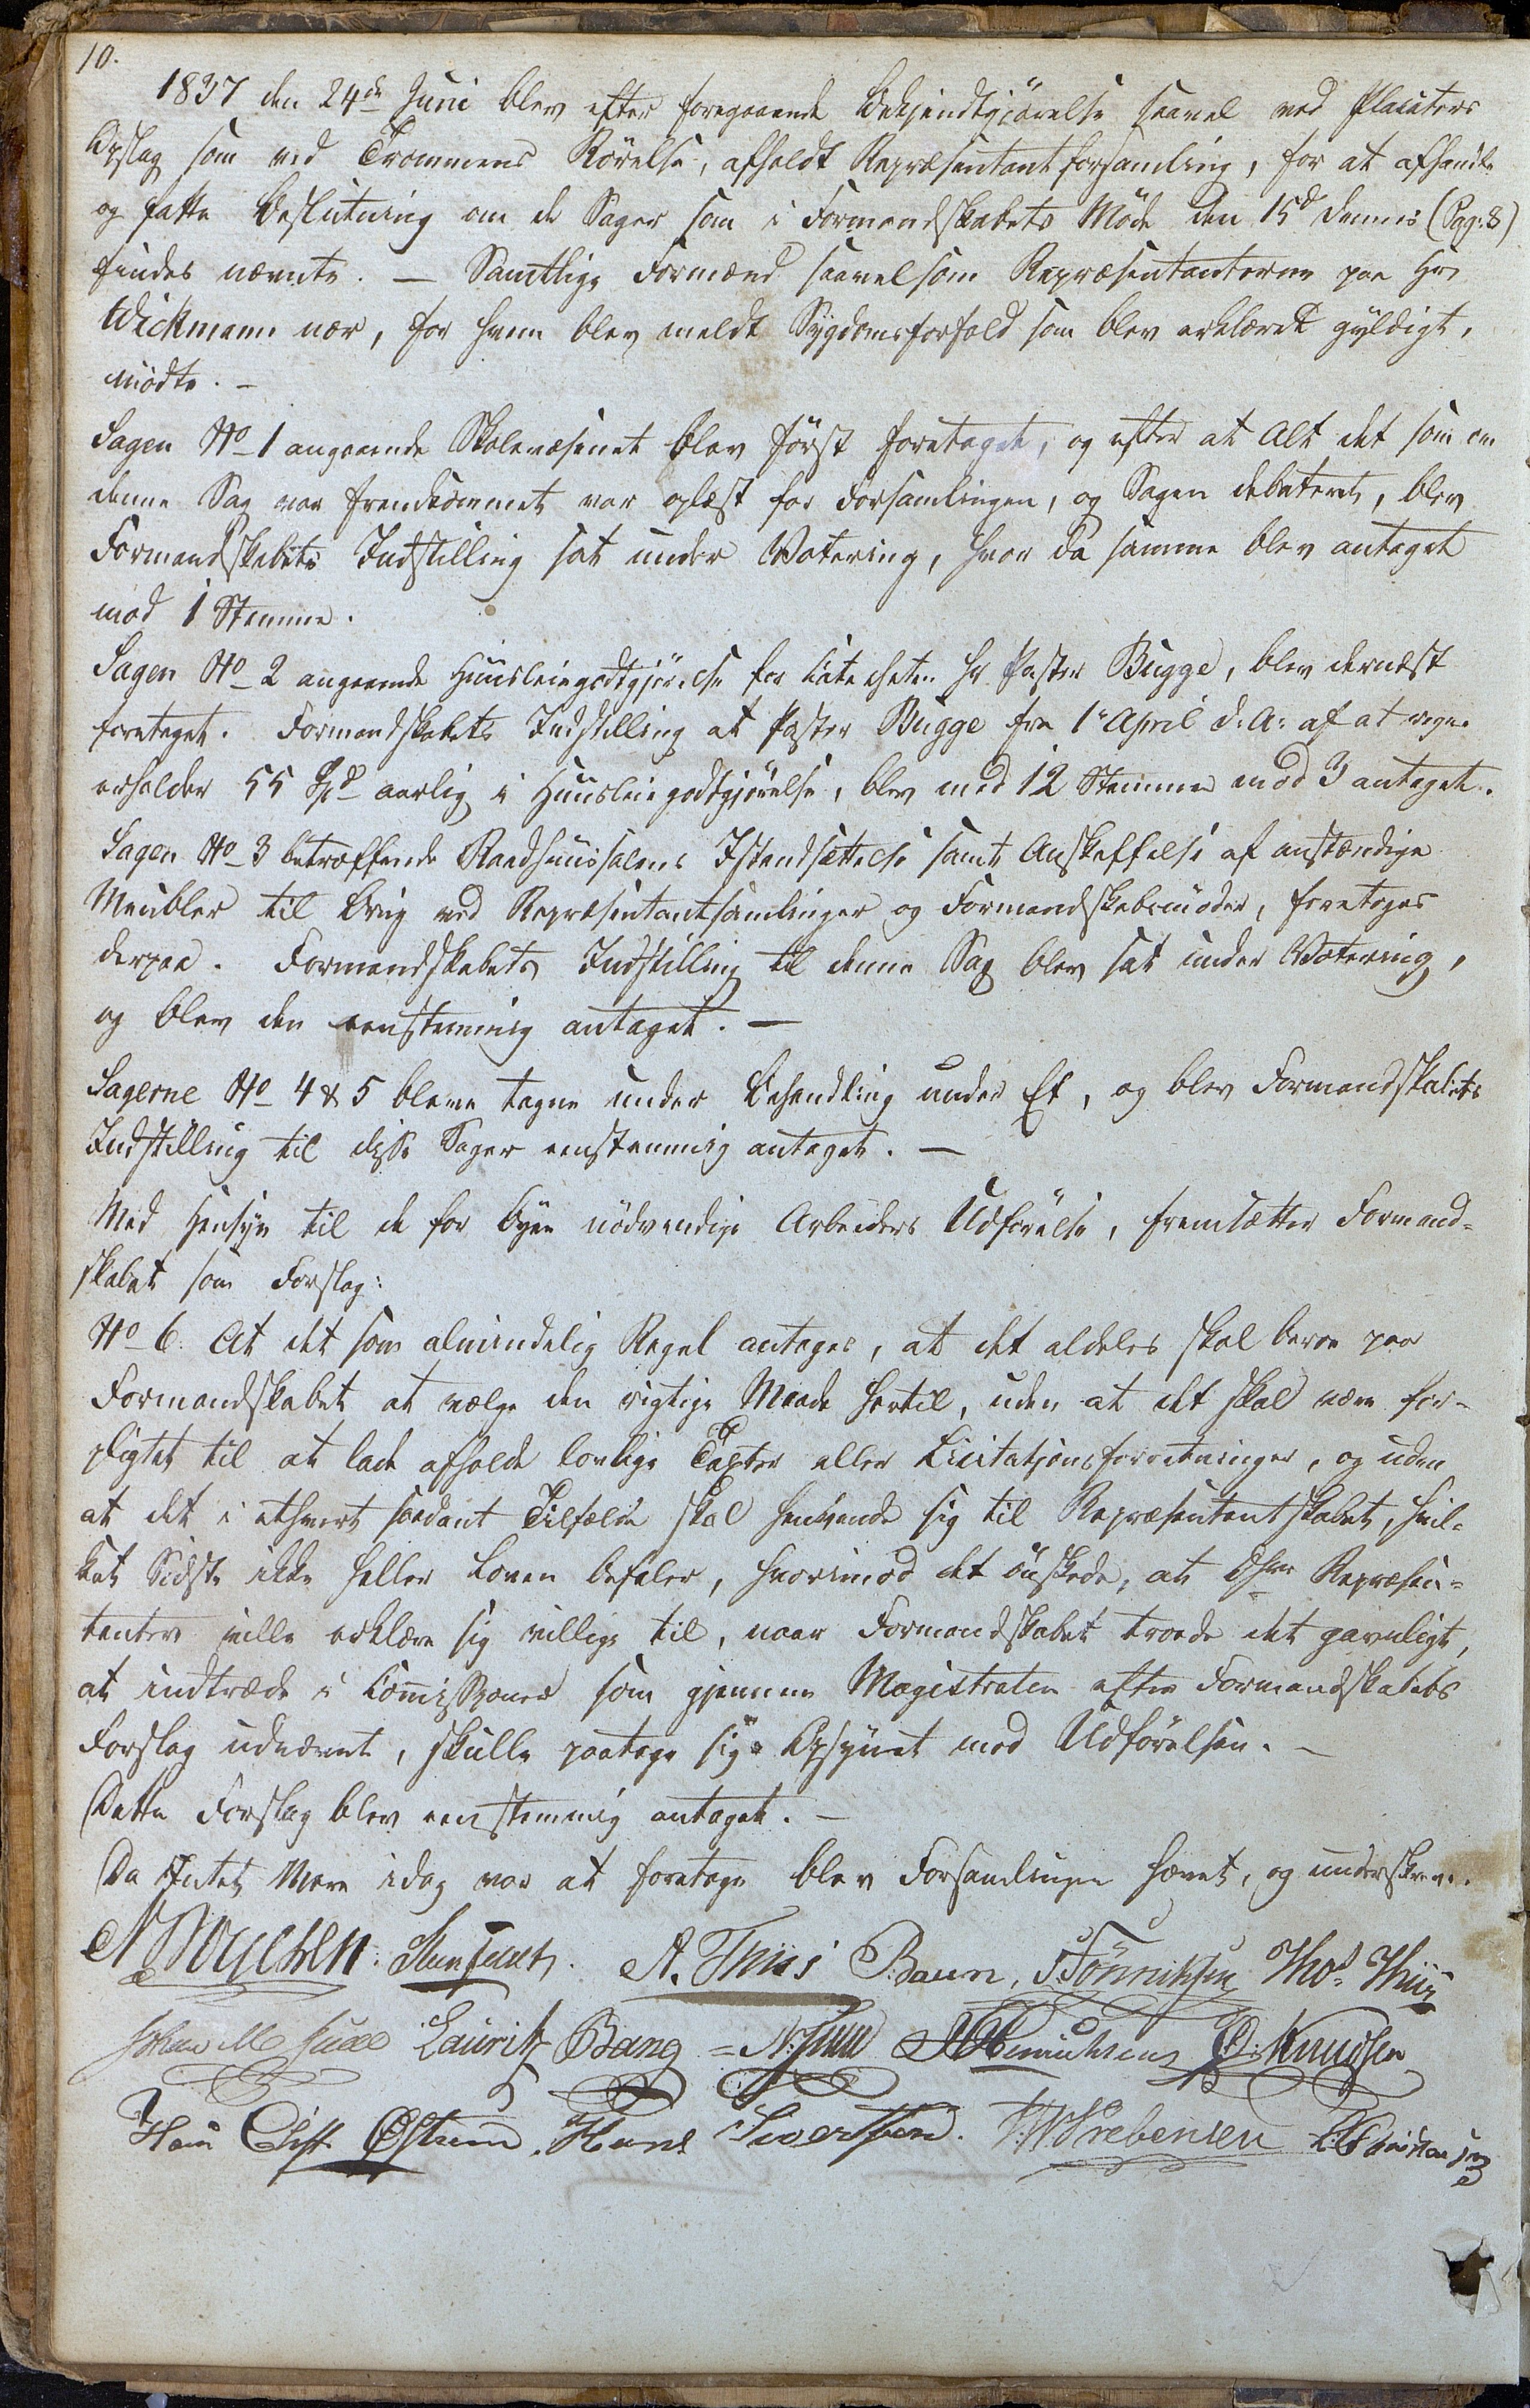 10.
1837 den 24de Juni blev efter foregaaende Bekjendtgjörelse saavel ved Placaters
Opslag som ved Trommens Rörelse, afholdt Repræsentantforsamling, for at afhandle
og fatte Beslutning om de Sager som i Formandskabets Möde den 15de dennes (Pag: 8)
findes nævnte. — Samtlige Formænd saavelsom Repræsentanterne paa Hr
Wickmann nær, for hvem blev meldt Sygdomsforfald som blev erklæredt gyldigt,
mödte. —
Sagen No 1 angaaende Skolevæsenet blev först foretaget, og efter at Alt det som om
denne Sag var fremkommet var oplæst for Forsamlingen, og Sagen debateret, blev
Formandskabets Indstilling sat under Votering, hvor da samme blev antaget
mod 1 Stemme.
Sagen No 2 angaaende Huusleiegodtgjörelse for Catecheten Hr Pastor Bugge, blev dernæst
foretaget. Formandskabets Indstilling at Pastor Bugge fra 1e April d: A: af at regne
erholder 55 Spd aarlig i Huusleiegodtgjörelse, blev med 12 Stemmer mod 3 antaget.
Sagen No 3 betræffende Raadhuussalens Istandsættelse samt Anskaffelse af anstændige
Meubler til Brug ved Repræsentantsamlinger og Formandskabsmöder, foretoges
derpaa. Formandskabets Indstilling til denne Sag blev sat under Votering,
og blev den eenstemmig antaget. —
Sagerne No 4 & 5 bleve tagne under Behandling under Et, og blev Formandskabets
Indstilling til disse Sager eenstemmig antaget. —
Med Hensyn til de for Byen nödvendige Arbeiders Udförelse, fremsætter Formand-
skabet som Forslag:
No 6. At det som almindelig Regel antages, at det aldeles skal beroe paa
Formandskabet at vælge den rigtige Maade hertil, uden at det skal være for-
pligtet til at lade afholde lovlige Taxter eller Licitationsforretninger, og uden
at det i ethvert saadant Tilfælde skal henvende sig til Repræsentantskabet, hvil-
ket Sidste ikke heller Loven befaler, hvorimod det önskede, at DHrr Repræsen-
tanter ville erklære sig villige til, naar Formandskabet troede det gavnligt,
at indtræde i Commissioner som gjennem Magistraten efter Formandskabets
Forslag udnævnt, skulle paatage sig Opsynet med Udförelsen. —
Dette Forslag blev eenstemmig antaget. —
Da Intet Mere idag var at foretage blev Forsamlingen hævet, og underskreven.
A. Thiis Baum, Thos Thiis
Johan M Lauritz Bang = O. Knudsen
Hans Chr. Östrem. Hans Sivertsen.